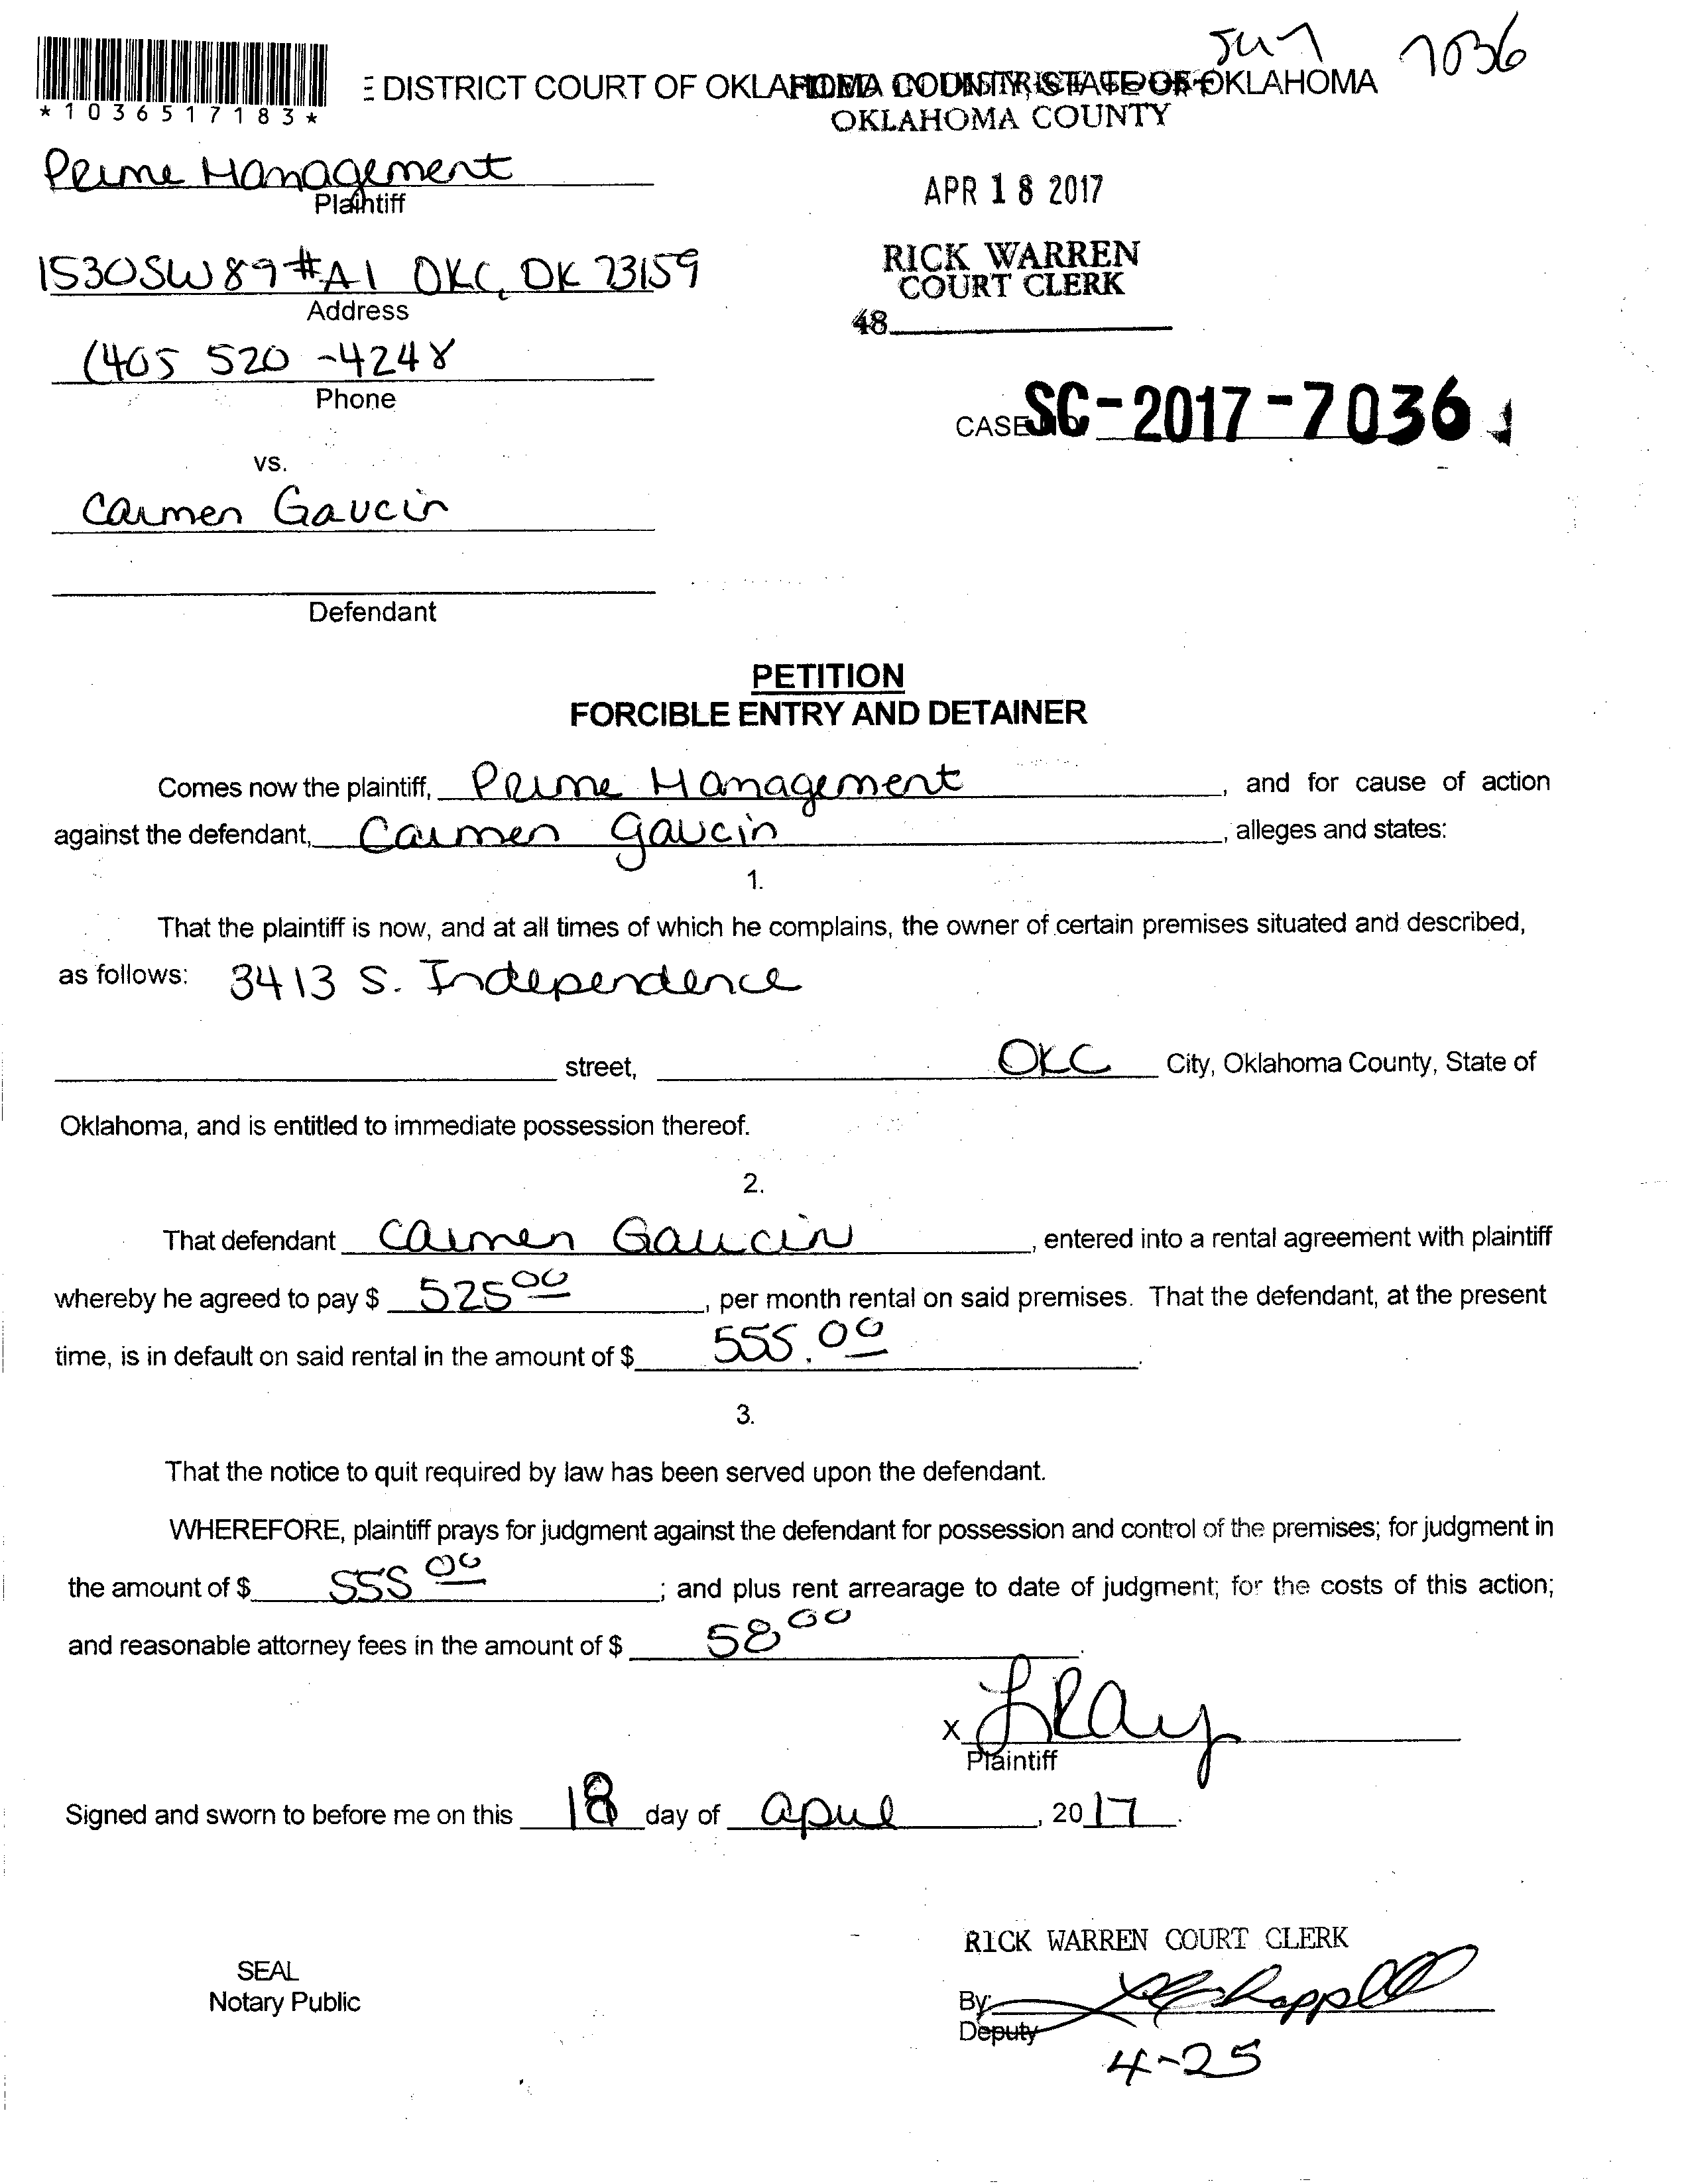 JU7 7036
*1036517183*
E DISTRICT COURT OF OKLAHOMA COUNTY, STATE OF OKLAHOMA
OKLAHOMA COUNTY
Prime Management
Plaintiff
APR 18 2017
1530 SW 89 #A1 OKC, OK 73159
Address
RICK WARREN
COURT CLERK
48
(405 520-4248
Phone
CASE SC-2017-7036
vs.
Carmen Gaucin
Defendant
PETITION
FORCIBLE ENTRY AND DETAINER
Comes now the plaintiff, Prime Management, and for cause of action
against the defendant, Carmen Gaucin, alleges and states:
1.
That the plaintiff is now, and at all times of which he complains, the owner of certain premises situated and described,
as follows: 3413 S. Independence
street, OKC City, Oklahoma County, State of
Oklahoma, and is entitled to immediate possession thereof.
2.
That defendant Carmen Gaucin, entered into a rental agreement with plaintiff
whereby he agreed to pay $ 525 00, per month rental on said premises. That the defendant, at the present
time, is in default on said rental in the amount of $ 555.00.
3.
That the notice to quit required by law has been served upon the defendant.
WHEREFORE, plaintiff prays for judgment against the defendant for possession and control of the premises; for judgment in
the amount of $ 555 00; and plus rent arrearage to date of judgment; for the costs of this action;
and reasonable attorney fees in the amount of $ 58 00.
X LRay
Plaintiff
Signed and sworn to before me on this 18 day of april, 2017.
RICK WARREN COURT CLERK
SEAL
Notary Public
By:
Deputy
4-25